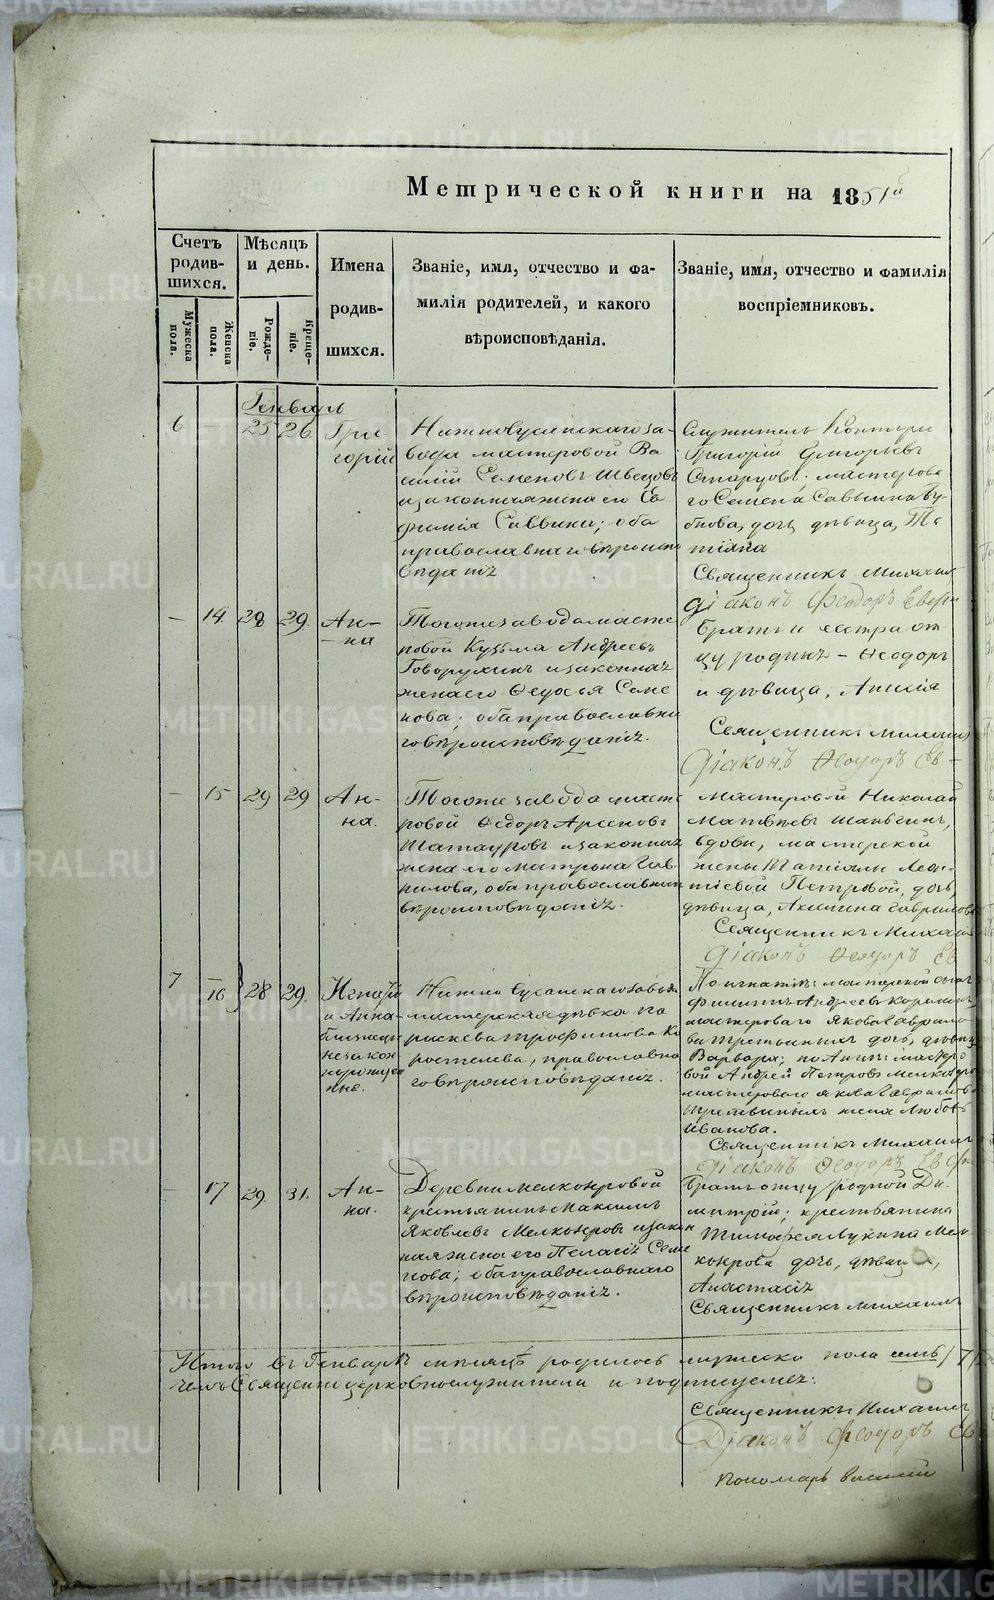 METRIKI.GASO-URAL.RU
Метрической книги на 1851й
Счетъ родив-шихся.
Мѣсяцъ и день.
Имена родив-шихся.
Званіе, имя, отчество и фа-
милія родителей, и какого
вѣроисповѣданія.
Званіе, имя, отчество и фамилія
воспріемниковъ.
Мужеска пола.
Женска пола.
Рожде-ніе.
Креще-ніе.
Генварь
6
25 26
Гри-
горій
заво-
вода мастеровой Ва
силій Семеновъ Швецовъ
и законная жена его Ев
фимія Саввина; оба
православнаго вѣроиспо
вѣданія
Служитель Конторы
Григорій Григорьевъ
Старцовъ; мастерова
го Семена Саввина Бу-
бнова, дочь дѣвица, Та
тіана
Священникъ Михаил
Діаконъ Феодоръ
14 28 29.
Ан-
на
Тогоже завода масте
ровой Кузьма Андреевъ
Говорухинъ и законная
жена его Федосья Семе
нова; оба православна
го вѣроисповѣданія.
Братъ и сестра от
цу родныя – Феодоръ
и дѣвица,
Священникъ Михаил
Діаконъ Феодоръ Ев
15 29 29
Ан-
на.
Тогоже завода масте
ровой Федоръ Арсеновъ
Шатауровъ и законная
жена его Матрона Гав-
рилова, оба православнаго
вѣроисповѣданія.
Мастеровой Николай
Матвѣевъ
вдовы, мастерской
жены Татіаны Леон-
тіевой Петровой, дочь,
дѣвица, Гаврилова
Священникъ Михаил
Діаконъ Феодоръ Ев
7 16 28 29.
Игнатій
и Анна
близнецы
незакон
норожден
ныя.
завода
мастерская дѣвка Па
раскева Трофимова Ко
ростелева, православна
го вѣроисповѣданія.
По Игнатіѣ: мастерской сынъ
Филиппъ Андреевъ
мастероваго Якова Гаврило-
ва дочь, дѣвица
Варвара; по Аннѣ: масте
ровой Андрей Петровъ
мастероваго Якова Гаврилова
жена Любовь
Иванова.
Священникъ Михаил
Діаконъ Феодоръ Ев
17 29 31.
Ан-
на.
Деревни Мелкозеровой
крестьянинъ Максимъ
Яковлевъ Мелкозеровъ и закон
ная жена его Пелагія Семе
нова; оба православнаго
вѣроисповѣданія.
Братъ отцу родной Ди-
митрій; крестьянина
Тимофея Лукина Мел-
козерова дочь, дѣвица,
Анастасія
Священникъ Михаил
Итого въ Генварѣ мѣсяцѣ родилось мужеска пола семь /7/
чемъ Священно церковнослужители и подписуемся:
Священникъ Михаил
Діаконъ Феодоръ Ев
Пономарь Василій